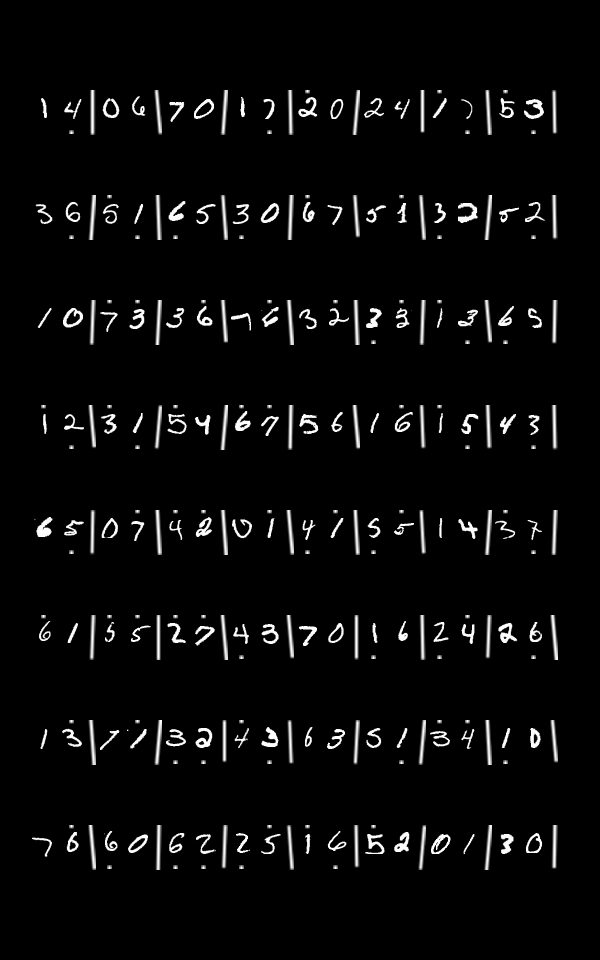 1 4 | 0 6 | 7 0 | 1 7 | 2 0 | 2 4 | 1 7 | 5 3 |
3 6 | 5 1 | 6 5 | 3 0 | 6 7 | 5 1 | 3 2 | 5 2 |
1 0 | 7 3 | 3 6 | 7 6 | 3 2 | 3 3 | 1 3 | 6 5 |
1 2 | 3 1 | 5 4 | 6 7 | 5 6 | 1 6 | 1 5 | 4 3 |
6 5 | 0 7 | 4 2 | 0 1 | 4 1 | 5 5 | 1 4 | 3 7 |
6 1 | 5 5 | 2 7 | 4 3 | 7 0 | 1 6 | 2 4 | 2 6 |
1 3 | 7 1 | 3 2 | 4 3 | 6 3 | 5 1 | 3 4 | 1 0 |
7 6 | 6 0 | 6 2 | 2 5 | 1 6 | 5 2 | 0 1 | 3 0 |